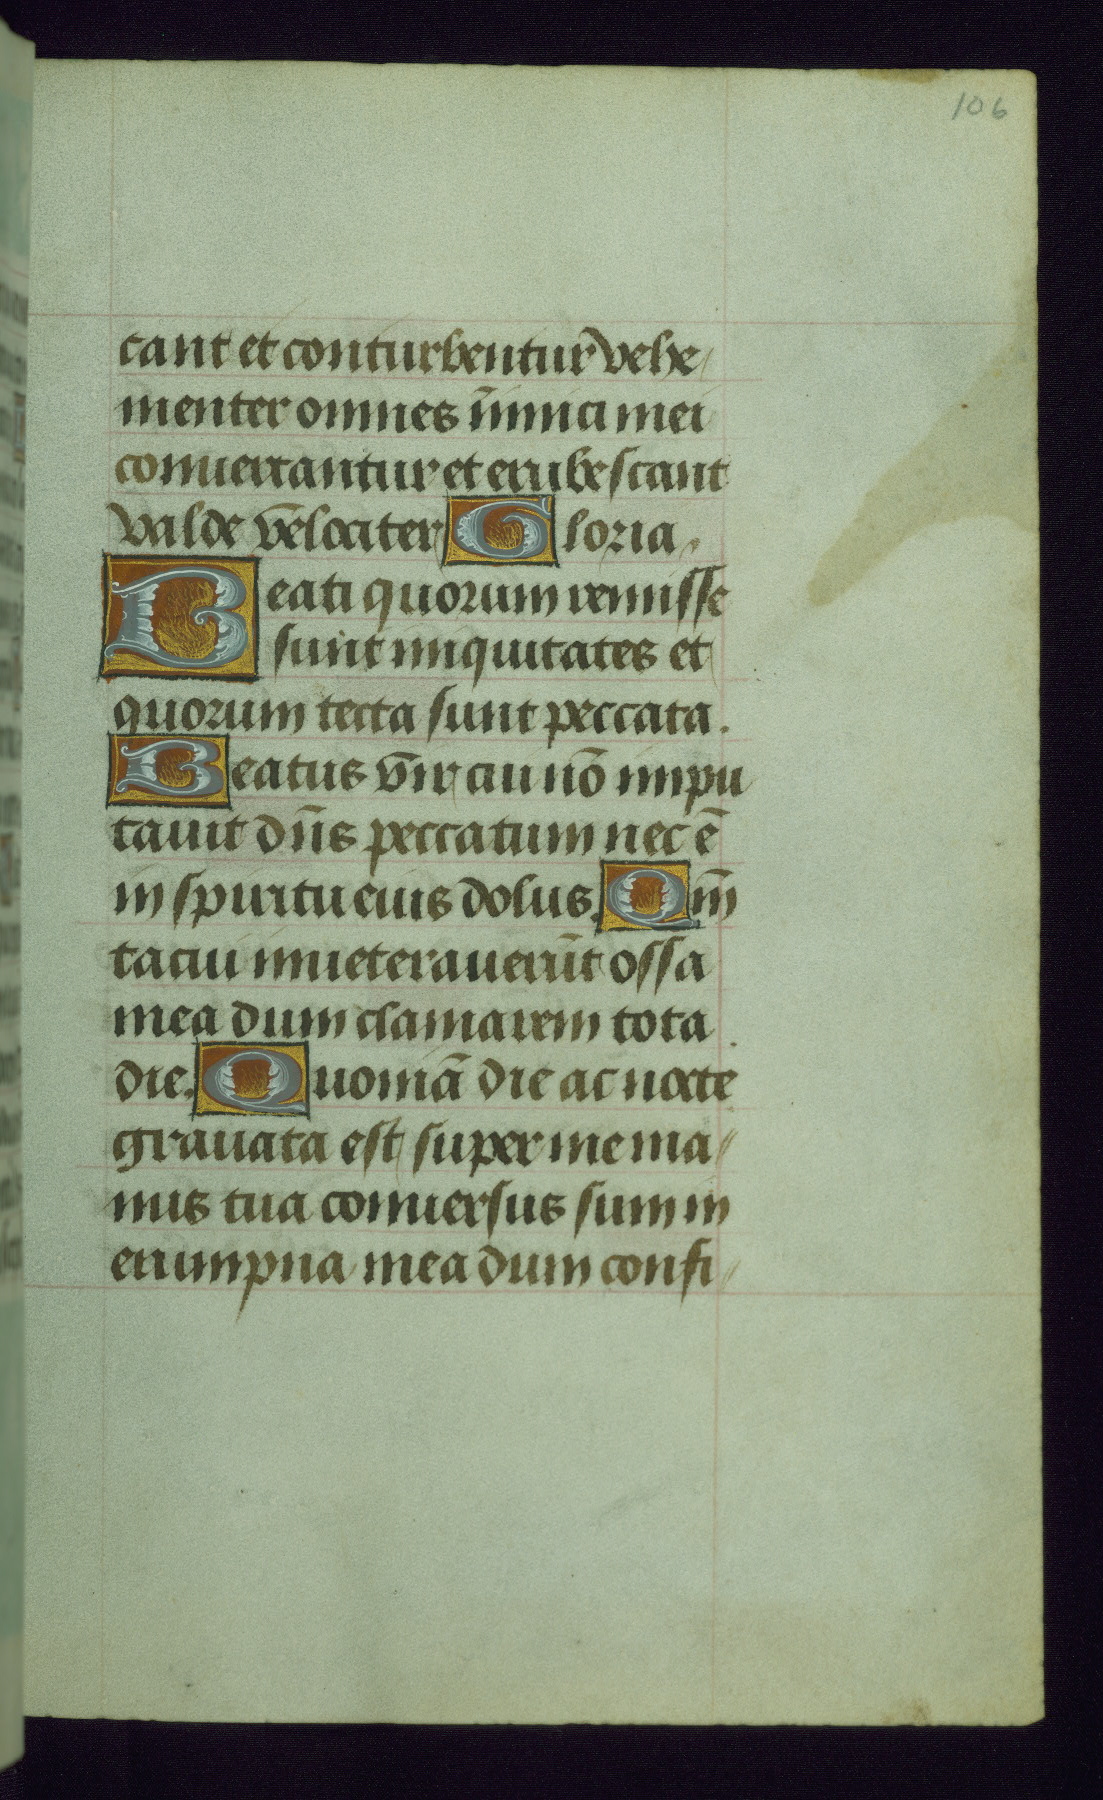 106
cant et conturbentur vehe
menter omnes inimici mei
convertantur et erubescant
valde velociter Gloria.
Beati quorum remisse
sunt iniquitates et
quorum tecta sunt peccata.
Beatus vir cui nō impu
tavit dn̄s peccatum nec ē
in spiritu eius dolus. Qm̄
tacui inveteraverūt ossa
mea dum clamarem tota
die. Quoniā die ac nocte
gravata est super me ma
nus tua conversus sum in
erumpna mea dum confi